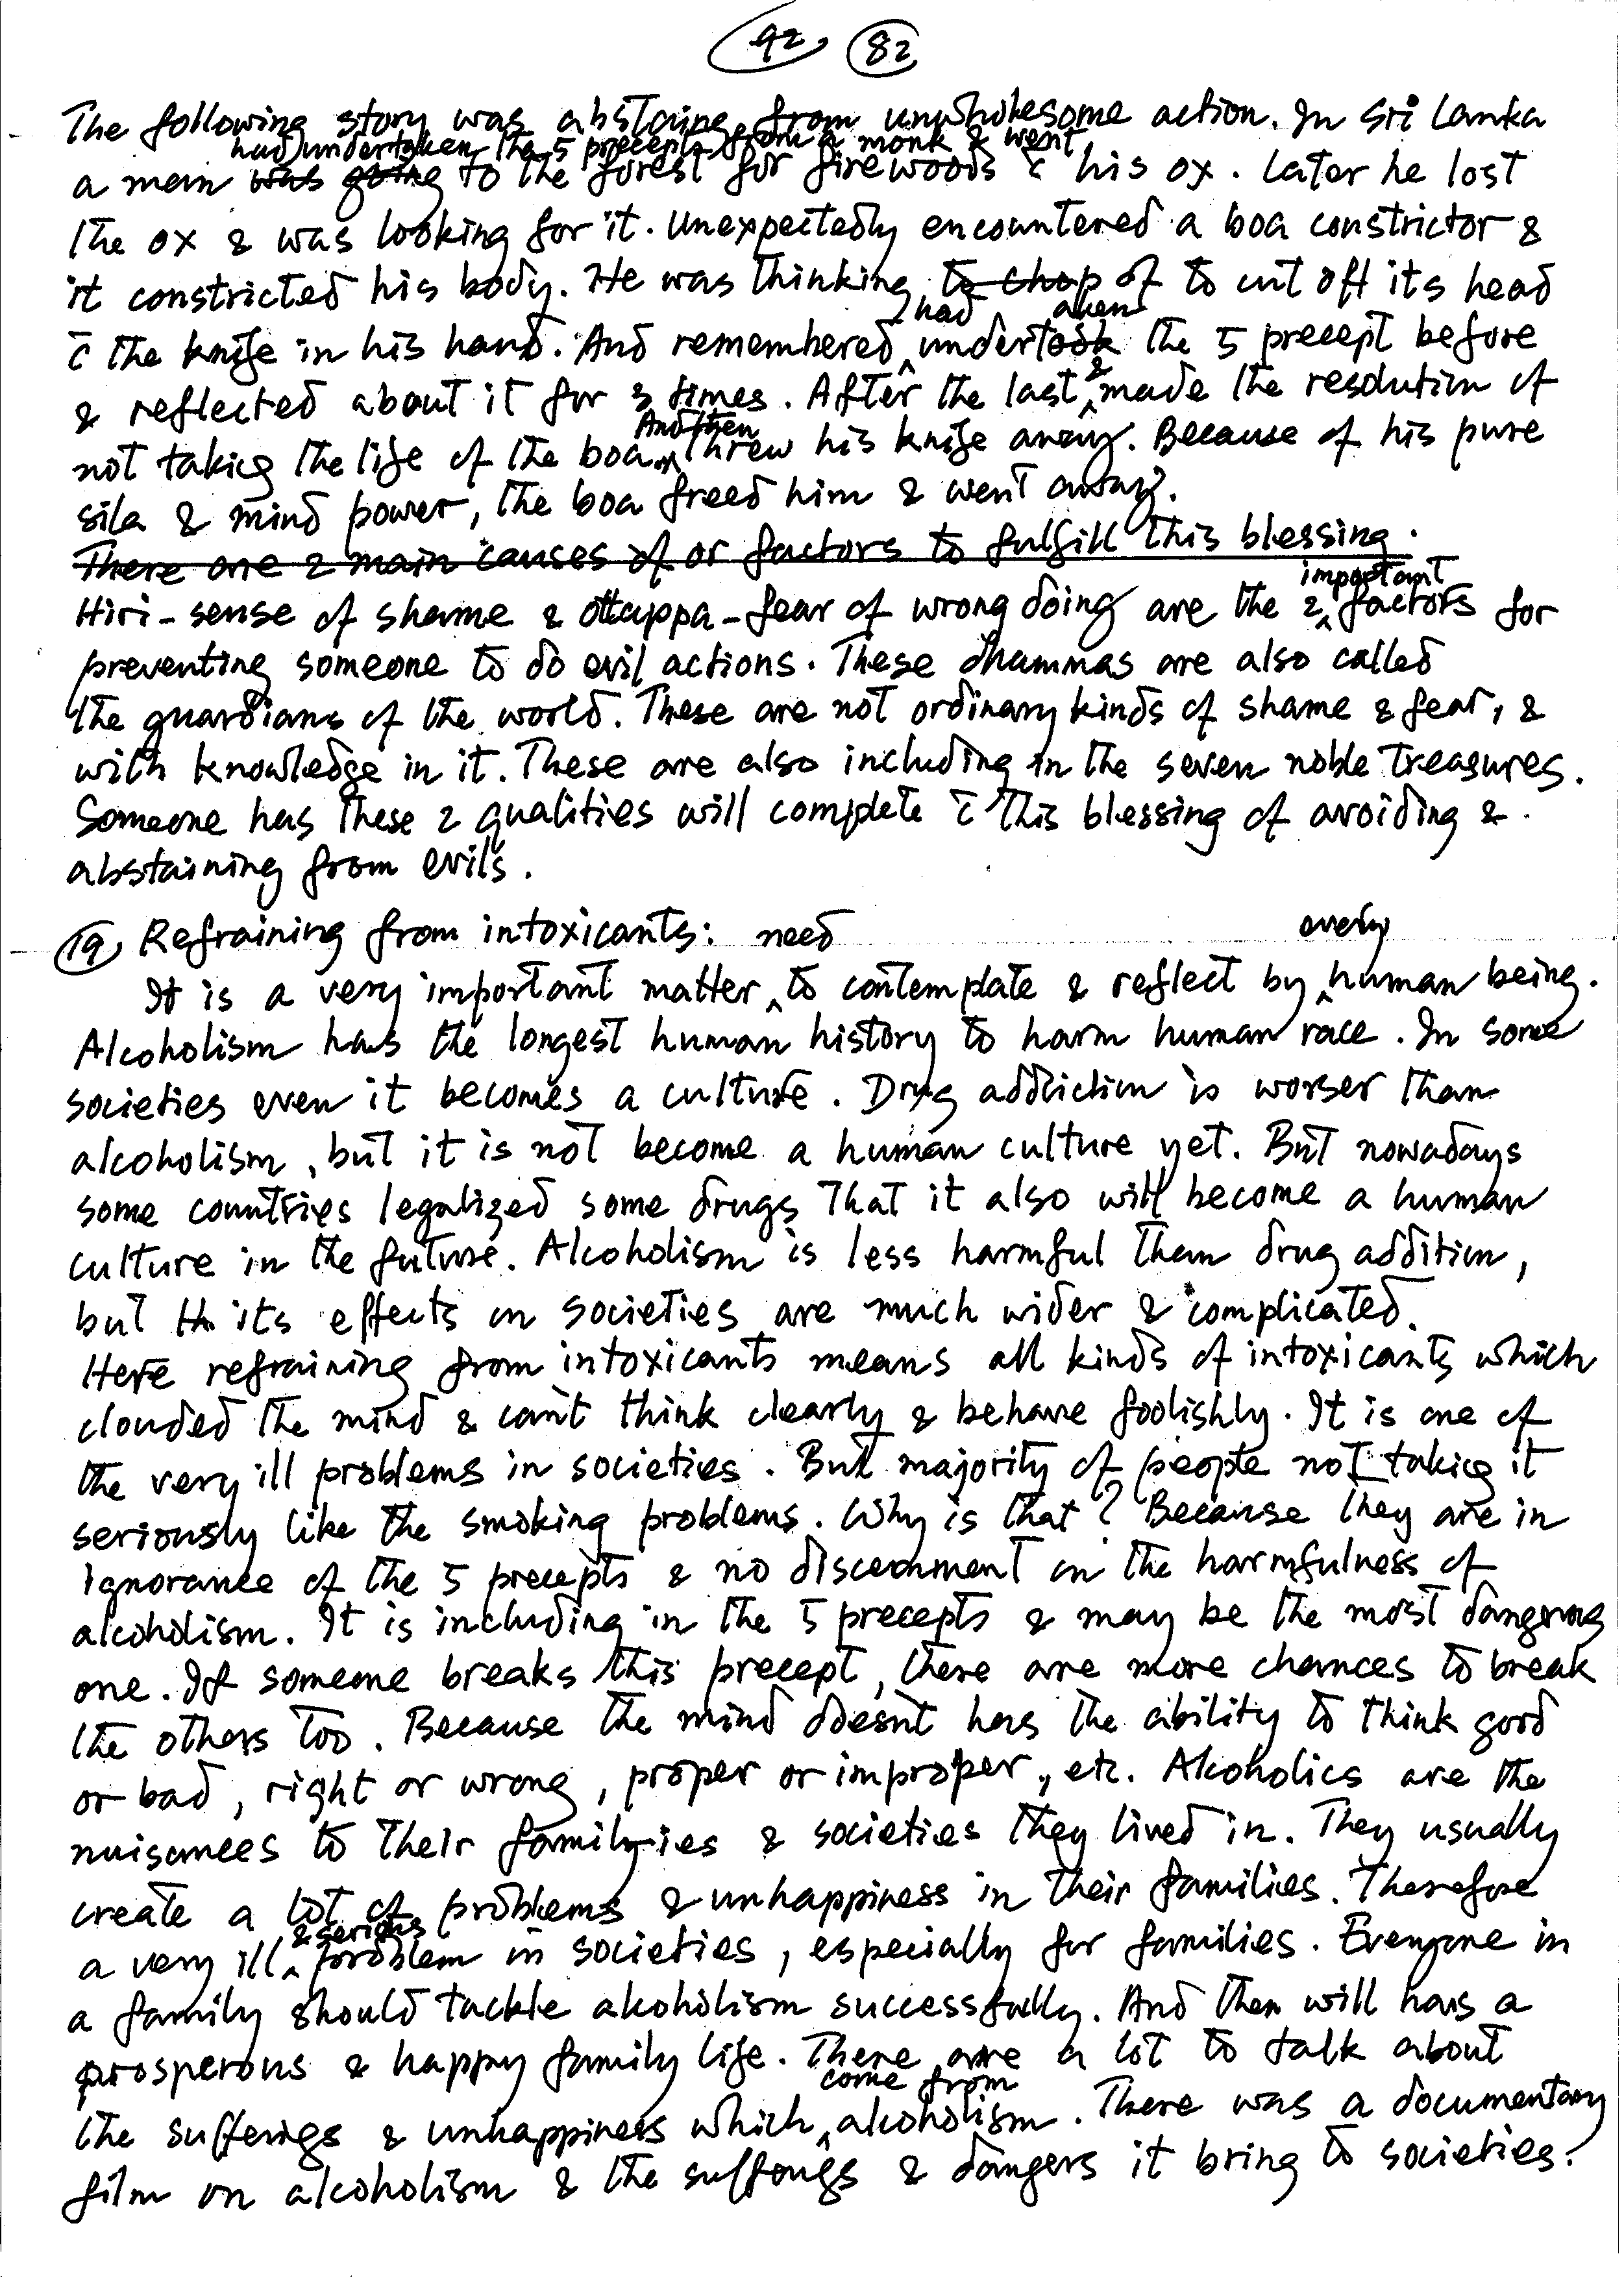 92, 82
The following story was abstaing from unwholesome action. In Sri Lanka
had undertaken the 5 precepts from a monk & went
a man was going to the forest for firewoods c̄ his ox. Later he lost
the ox & was looking for it. Unexpectedly encountered a boa constrictor &
it constricted his body. He was thinking to chop of to cut off its head
had aken
c̄ the knife in his hand. And remembered undertook the 5 precept before
& reflected about it for 3 times. After the last & made the resolution of
And then
not taking the life of the boa. threw his knife away. Because of his pure
sila & mind power, the boa freed him & went away.
There are 2 main causes of or factors to fulfill this blessing.
important
Hiri - sense of shame & ottappa - fear of wrong doing are the 2 factors for
preventing someone to do evil actions. These dhammas are also called
the guardians of the world. These are not ordinary kinds of shame & fear, &
with knowledge in it. These are also including in the seven noble treasures.
Someone has these 2 qualities will complete c̄ this blessing of avoiding &
abstaining from evils.
19, Refraining from intoxicants: need every
It is a very important matter to contemplate & reflect by human being.
Alcoholism has the longest human history to harm human race. In some
societies even it becomes a culture. Drug addiction is worser than
alcoholism, but it is not become a human culture yet. But nowadays
some countries legalized some drugs that it also will become a human
culture in the future. Alcoholism is less harmful than drug addition,
but its effects on societies are much wider & complicated.
Here refraining from intoxicants means all kinds of intoxicants which
clouded the mind & can't think clearly & behave foolishly. It is one of
the very ill problems in societies. But majority of people not taking it
seriously like the smoking problems. Why is that? Because they are in
ignorance of the 5 precepts & no discernment on the harmfulness of
alcoholism. It is including in the 5 precepts & may be the most dangerous
one. If someone breaks this precept, there are more chances to break
the others too. Because the mind doesn't has the ability to think good
or bad, right or wrong, proper or improper, etc. Alcoholics are the
nuisances to their families & societies they lived in. They usually
create a lot of problems & unhappiness in their families. Therefore
& serious
a very ill problem in societies, especially for families. Everyone in
a family should tackle alcoholism successfully. And then will has a
prosperous & happy family life. There are a lot to talk about
come from
the sufferings & unhappiness which alcoholism. There was a documentary
film on alcoholism & the sufferings & dangers it bring to societies.